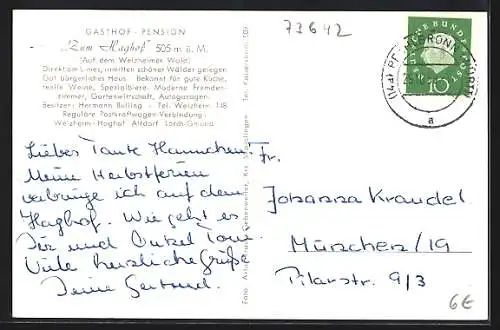 GASTHOF - PENSION
"Zum Haghof" 505 m ü. M.
(Auf dem Welzheimer Wald)
Direkt am Limes, inmitten schöner Wälder gelegen
Gut bürgerliches Haus - Bekannt für gute Küche,
reelle Weine, Spezialbiere - Moderne Fremden-
zimmer, Gartenwirtschaft, Autogaragen.
Besitzer: Hermann Bulling - Tel. Welzheim 148
Reguläre Postkraftwagen-Verbindung:
Welzheim-Haghof Alfdorf Lorch-Gmünd
Liebes Tante Hannchen!
Meine Herbstferien
verbringe ich auf dem
Haghof. Wie geht es
Dir und Onkel Toni.
Viele herzliche Grüße
Deine Gertrud.
Foto
73642
DEUTSCHE BUNDESPOST
10
(14a)
a
Fr.
Johanna Kraudel
München/19
Pilarstr. 9/3
6€